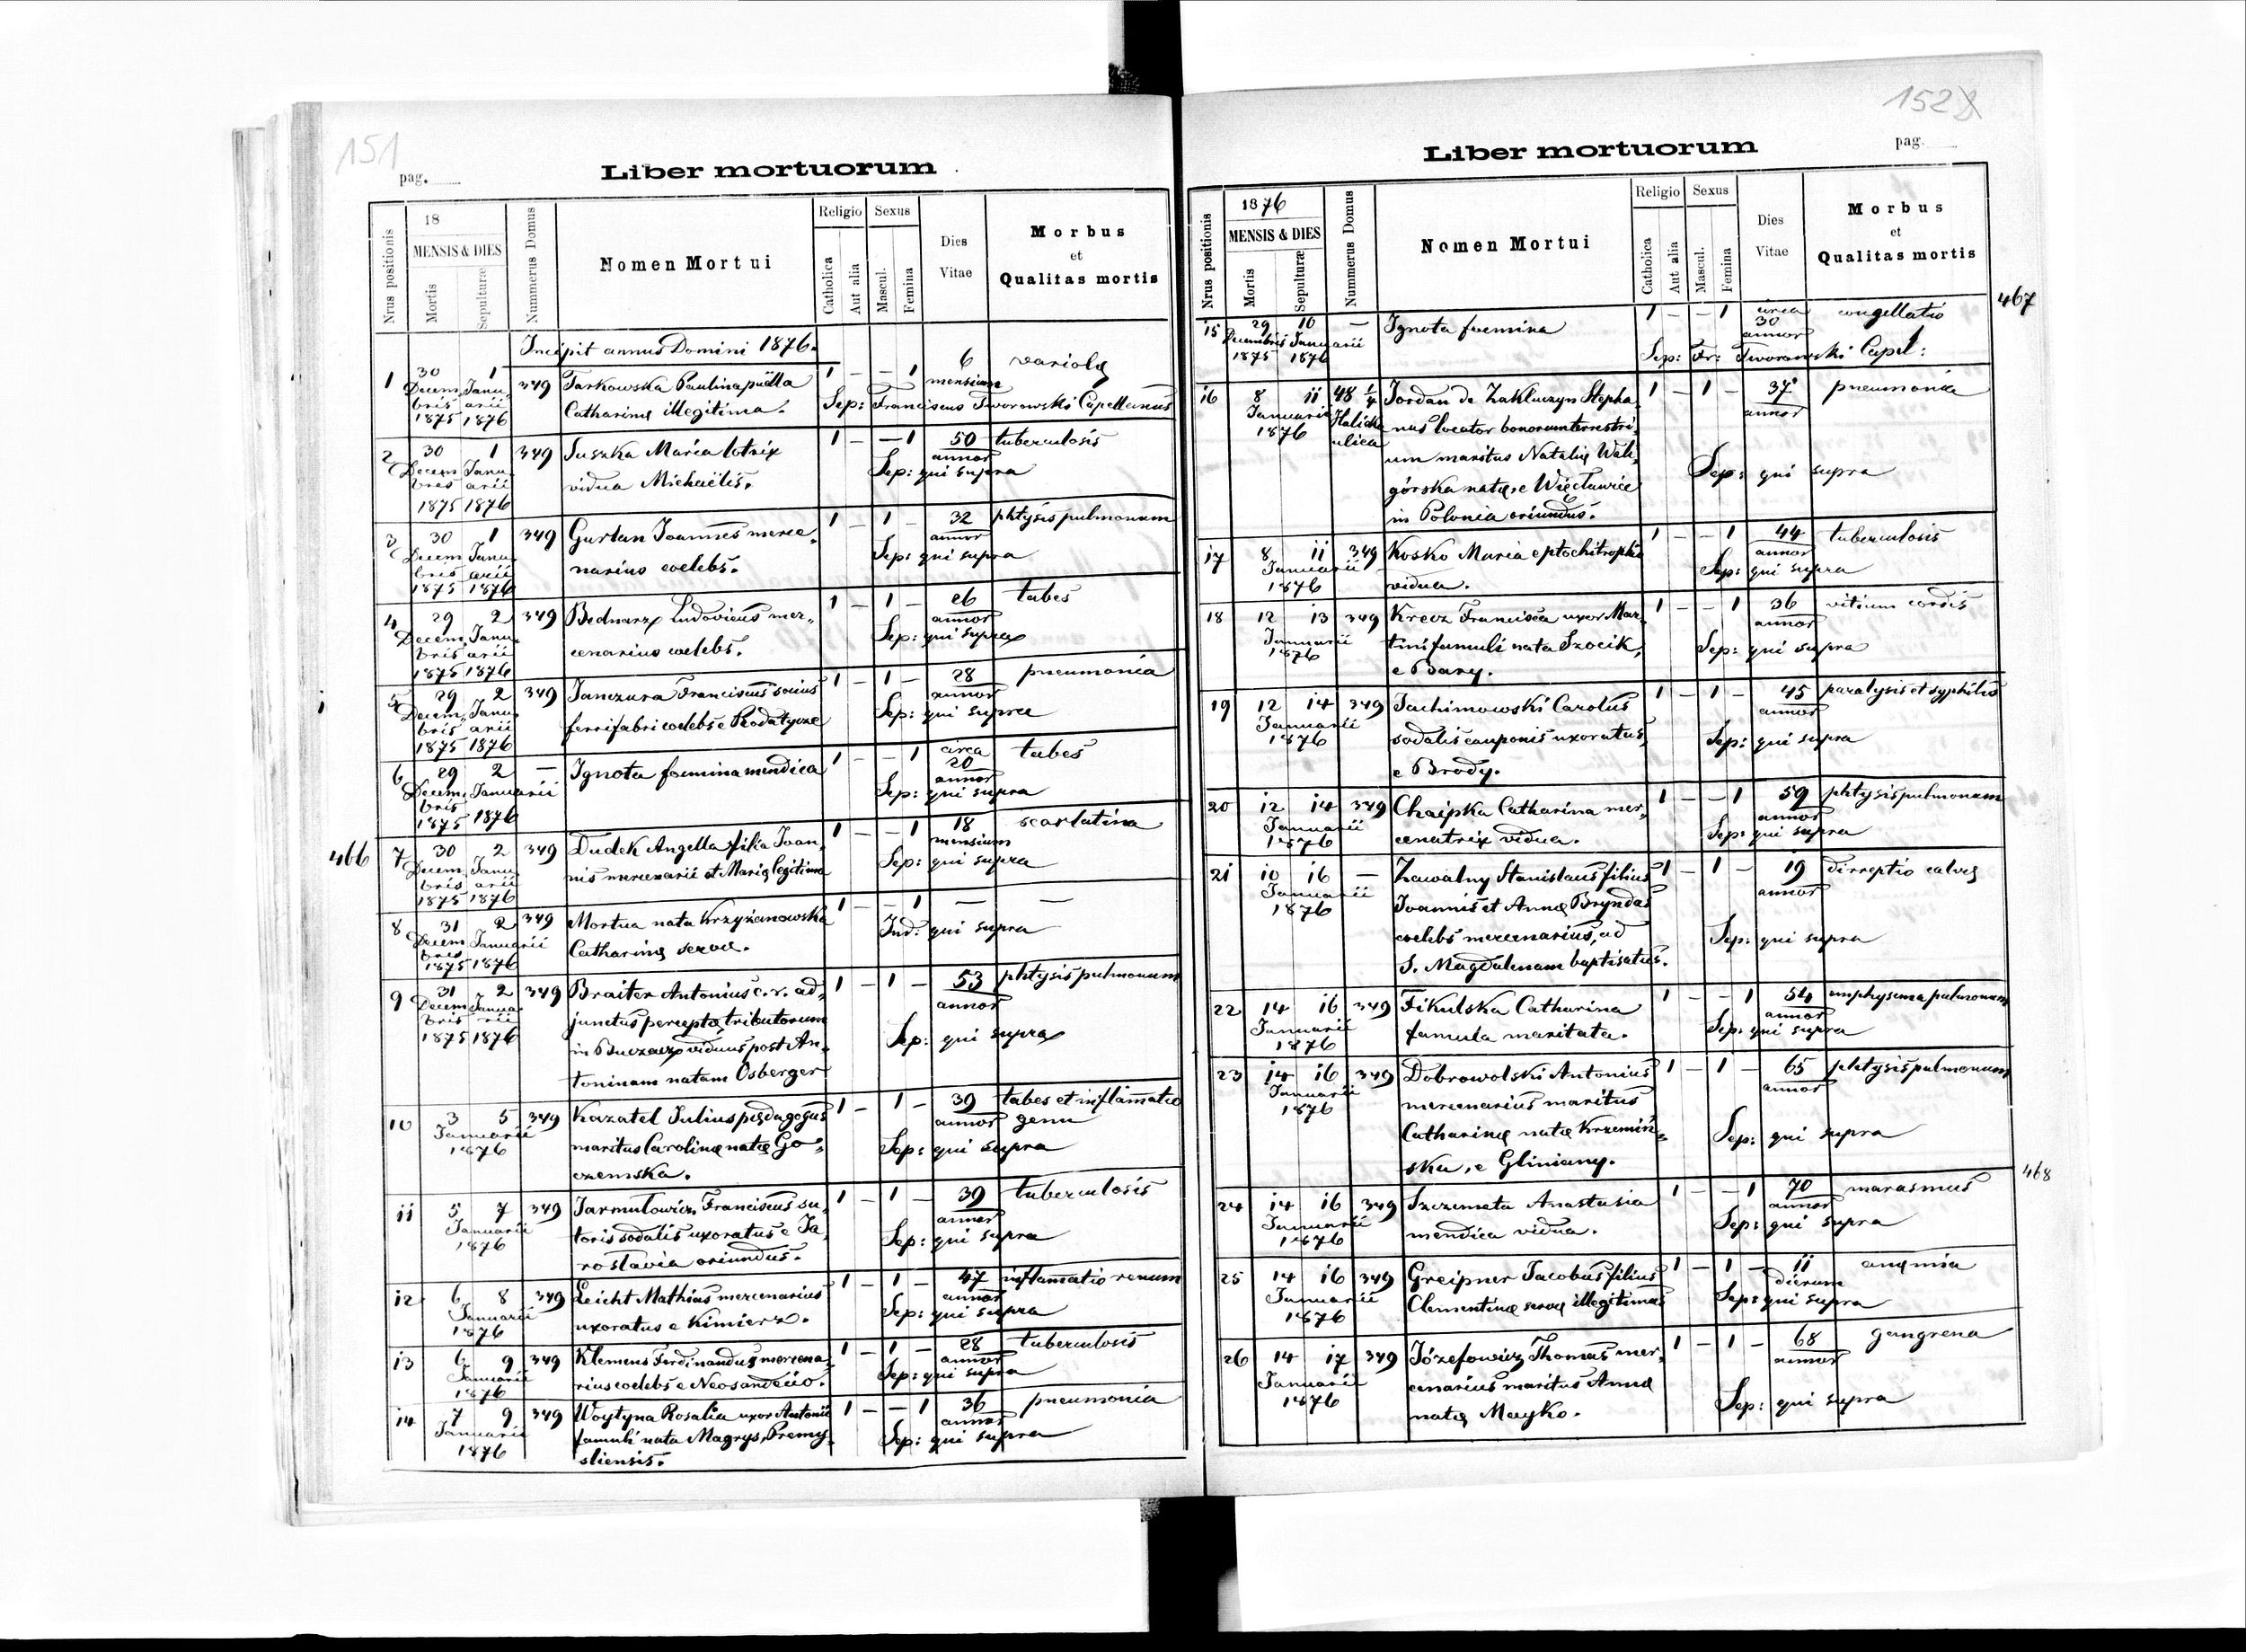 151
pag.
Liber mortuorum
Nrus positionis
18
MENSIS & DIES
Mortis
Sepulturæ
Nummerus Domus
Nomen Mortui
Religio
Catholica
Aut alia
Sexus
Mascul.
Femina
Dies
Vitae
Morbus
et
Qualitas mortis
Incipit annus Domini 1876.
1 30 Decem, bris 1875 1 Janu, arii 1876 349 Tarkowska Paulina puella 1 — — 1 6 mensium variolę
Catharinę illegitima. Sep: Franciscus Tworowski Capellanus
2 30 Decem, bris 1875 1 Janu, arii 1876 349 Suszka Maria lotrix 1 — — 1 50 annor tuberculosis
vidua Michaëlis. Sep: qui supra
3 30 Decem, bris 1875 1 Janu, arii 1876 349 Gurlan Joannes merce, 1 — 1 — 32 annor phtysis pulmonum
narius coelebs. Sep: qui supra
4 29 Decem, bris 1875 2 Janu, arii 1876 349 Bednarz Ludovicus mer, 1 — 1 — 26 annor tabes
cenarius coelebs. Sep: qui supra
5 29 Decem, bris 1875 2 Janu, arii 1876 349 Janczura Franciscus socius 1 — 1 — 28 annor pneumonia
ferrifabri coelebs e Rodatycze Sep: qui supra
6 29 Decem, bris 1875 2 Januarii 1876 — Ignota foemina mendica 1 — — 1 circa 20 annor tabes
Sep: qui supra
466
7 30 Decem, bris 1875 2 Janu, arii 1876 349 Dudek Angella filia Joan, 1 — — 1 18 mensium scarlatina
nis mercenarii et Marię legitima Sep: qui supra
8 31 Decem, bris 1875 2 Januarii 1876 349 Mortua nata Krzyżanowska 1 — — 1 — —
Catharinę servæ. Ind: qui supra
9 31 Decem, bris 1875 2 Janua, rii 1876 349 Braiter Antonius c. r. ad, 1 — 1 — 53 annor phtysis pulmonum
junctus perceptę tributorum
in Buczacz viduus post An, Sep: qui supra
toninam natam Osberger
10 3 5 Januarii 1876 349 Kazatel Julius pędagogus 1 — 1 — 39 annor tabes et inflamatio genu
maritus Carolinę natę Go, Sep: qui supra
czemska.
11 5 7 Januarii 1876 349 Jarmulowicz Franciscus su, 1 — 1 — 39 annor tuberculosis
toris sodalis uxoratus e Ja, Sep: qui supra
roslavia oriundus.
12 6 8 Januarii 1876 349 Leicht Mathias mercenarius 1 — 1 — 47 annor inflamatio renum
uxoratus e Kimierz. Sep: qui supra
13 6 9 Januarii 1876 349 Klemens Ferdinandus mercena, 1 — 1 — 28 annor tuberculosis
rius coelebs e Neosandecio. Sep: qui supra
14 7 9 Januarii 1876 349 Woytyna Rosalia uxor Antonii 1 — — 1 36 annor pneumonia
famuli nata Magrys, Premy, Sep: qui supra
sliensis.
152
pag.
Liber mortuorum
Nrus positionis
1876
MENSIS & DIES
Mortis
Sepulturæ
Nummerus Domus
Nomen Mortui
Religio
Catholica
Aut alia
Sexus
Mascul.
Femina
Dies
Vitae
Morbus
et
Qualitas mortis
467
15 29 Decembris 1875 10 Januarii 1876 — Ignota foemina 1 — — 1 circa 30 annor congellatio
Sep: Fr: Tworowski Capel:
16 8 11 Januarii 1876 48 1/4 Halicka ulica Jordan de Zakluczyn Stepha, 1 — 1 — 37 annor pneumonia
nus locator bonorum terrestri,
um maritus Natalię Wali,
górska natę, e Więcławice Sep: qui supra
in Polonia oriundus.
17 8 11 Januarii 1876 349 Kosko Maria e ptochitrophio 1 — — 1 44 annor tuberculosis
vidua. Sep: qui supra
18 12 13 Januarii 1876 349 Krecz Francisca uxor Mar, 1 — — 1 36 annor vitium cordis
tini famuli nata Szocik, Sep: qui supra
e Bary.
19 12 14 Januarii 1876 349 Jachimowski Carolus 1 — 1 — 45 annor paralysis et syphilis
sodalis cauponis uxoratus, Sep: qui supra
e Brody.
20 12 14 Januarii 1876 349 Chaipka Catharina mer, 1 — — 1 59 annor phtysis pulmonum
cenatrix vidua. Sep: qui supra
21 10 16 Januarii 1876 — Zawalny Stanislaus filius 1 — 1 — 19 annor dirreptio calvę
Joannis et Annę Bryndas
coelebs mercenarius, ad Sep: qui supra
S. Magdalenam baptisatus.
22 14 16 Januarii 1876 349 Fikulska Catharina 1 — — 1 54 annor emphysema pulmonum
famula maritata. Sep: qui supra
23 14 16 Januarii 1876 349 Dobrowolski Antonius 1 — 1 — 65 annor phtysis pulmonum
mercenarius maritus
Catharinę natę Krzemiń, Sep: qui supra
ska, e Gliniany.
468
24 14 16 Januarii 1876 349 Szczemeta Anastasia 1 — — 1 70 annor marasmus
mendica vidua. Sep: qui supra
25 14 16 Januarii 1876 349 Greipner Jacobus filius 1 — 1 — 11 dierum anęmia
Clementinę servę illegitimus Sep: qui supra
26 14 17 Januarii 1876 349 Józefowicz Thomas mer, 1 — 1 — 68 annor gangrena
cenarius maritus Annę Sep: qui supra
natę Mayko.